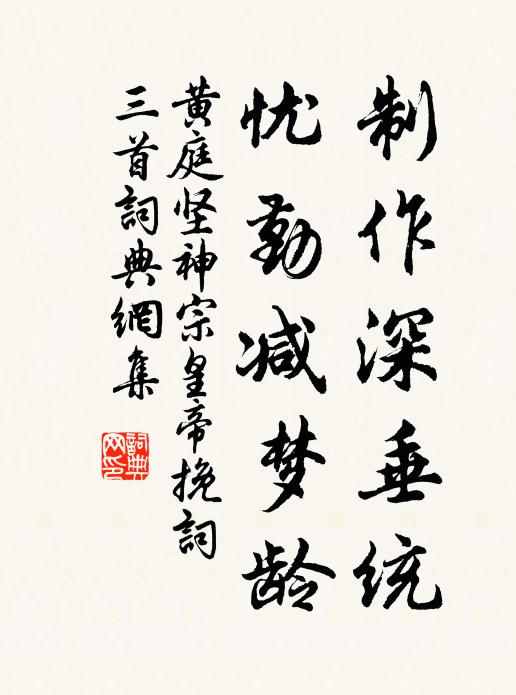 制作深垂统
忧勤减梦龄
黄庭坚神宗皇帝挽詞
三首詞典網集
詞典网印